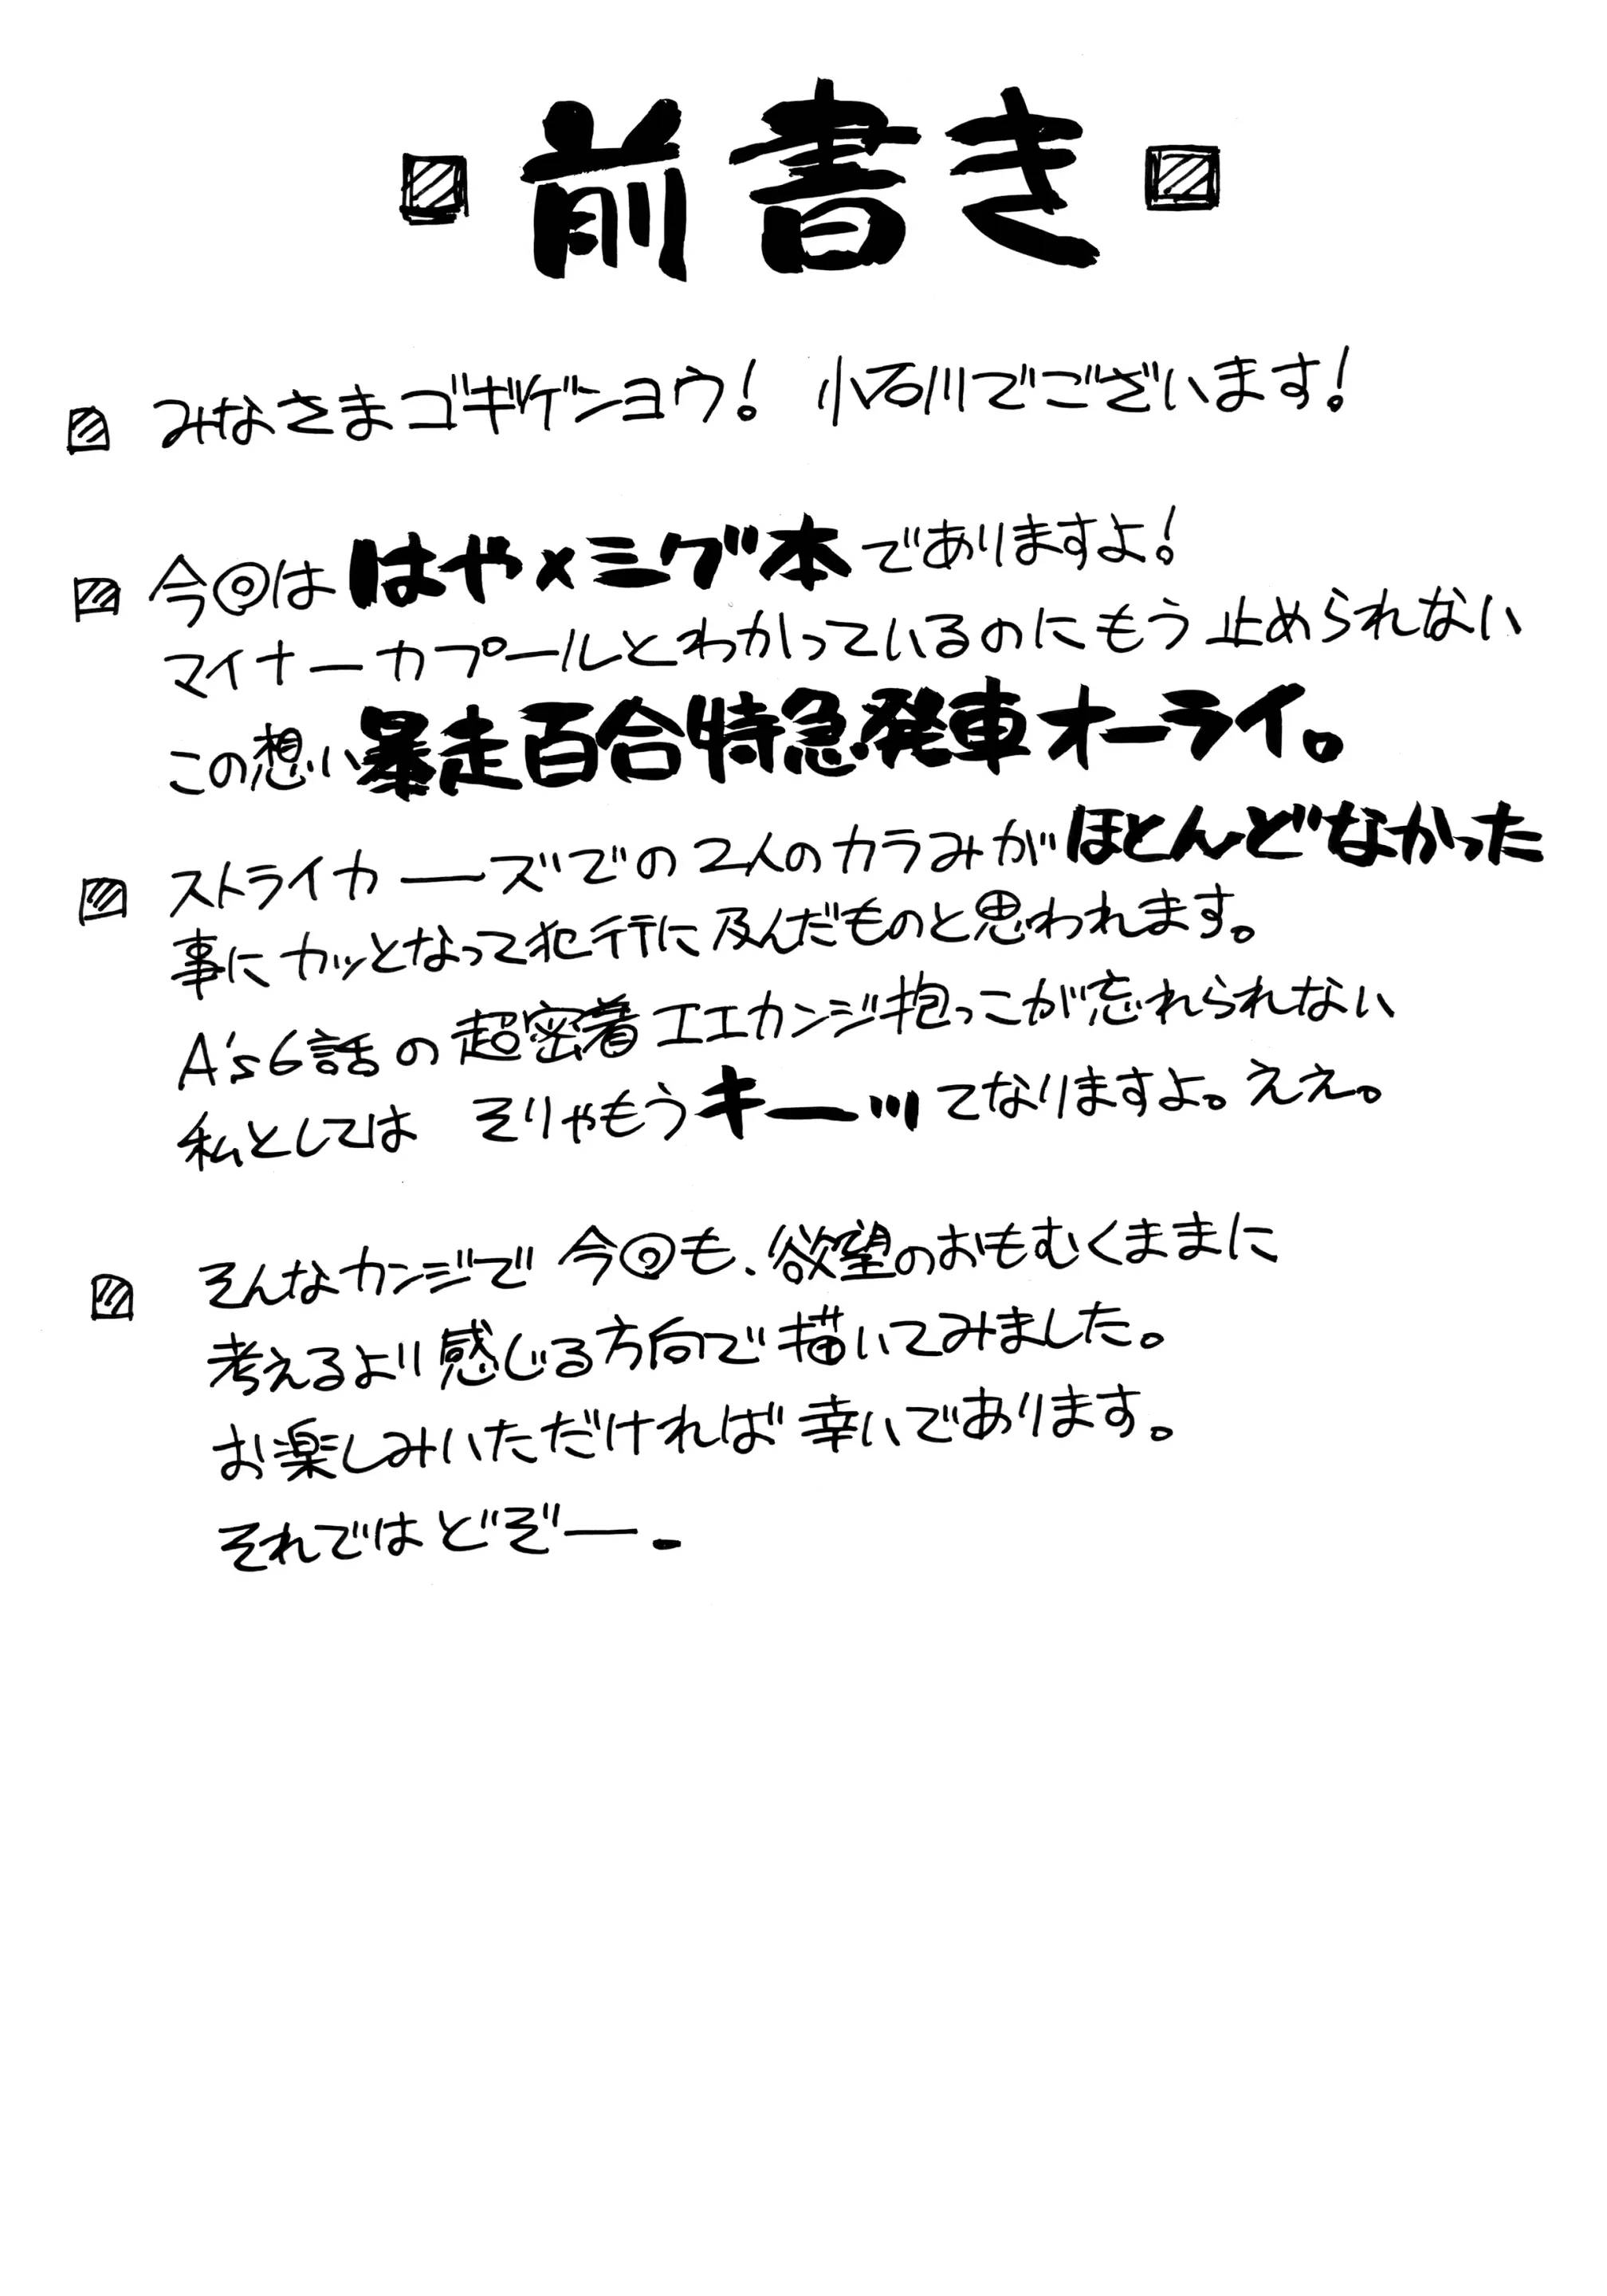 前書き
みなさまゴキゲンヨウ! 小石川でございます!
今回は はや×ミグ本でありますよ!
マイナーカプールとわかっているのにもう止められない
この想い暴走百合特急発車オーライ。
ストライカーズでの2人のカラみがほとんどなかった
事にカッとなって犯行に及んだものと思われます。
A's6話の超密着エエカンジ抱っこが忘れられない
私としては そりゃもうキーッてなりますよ。ええ。
そんなカンジで 今回も、欲望のおもむくままに
考えるより感じる方向で描いてみました。
お楽しみいただければ幸いであります。
それではどぞー.